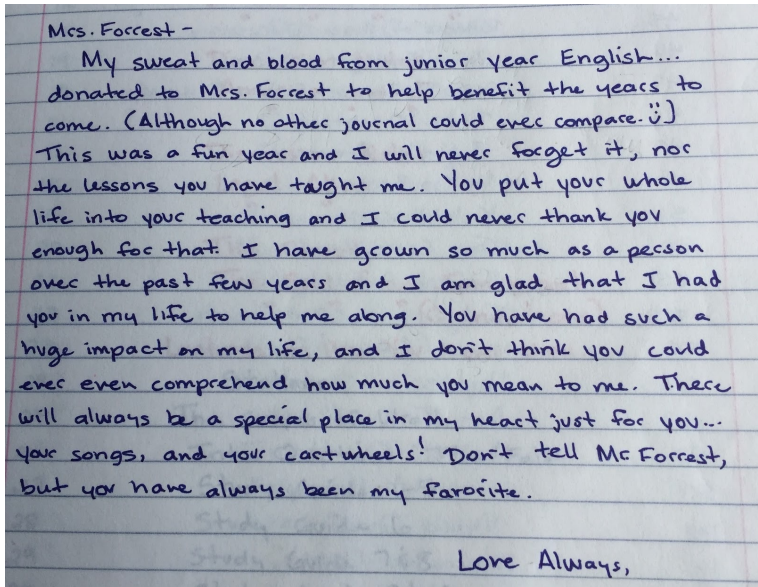 Mrs. Forrest -
My sweat and blood from junior year English...
donated to Mrs. Forrest to help benefit the years to
come. (Although no other journal could ever compare. :))
This was a fun year and I will never forget it, nor
the lessons you have taught me. You put your whole
life into your teaching and I could never thank you
enough for that. I have grown so much as a person
over the past few years and I am glad that I had
you in my life to help me along. You have had such a
huge impact on my life, and I don't think you could
ever even comprehend how much you mean to me. There
will always be a special place in my heart just for you...
your songs, and your cartwheels! Don't tell Mr Forrest,
but you have always been my favorite.
Love Always,